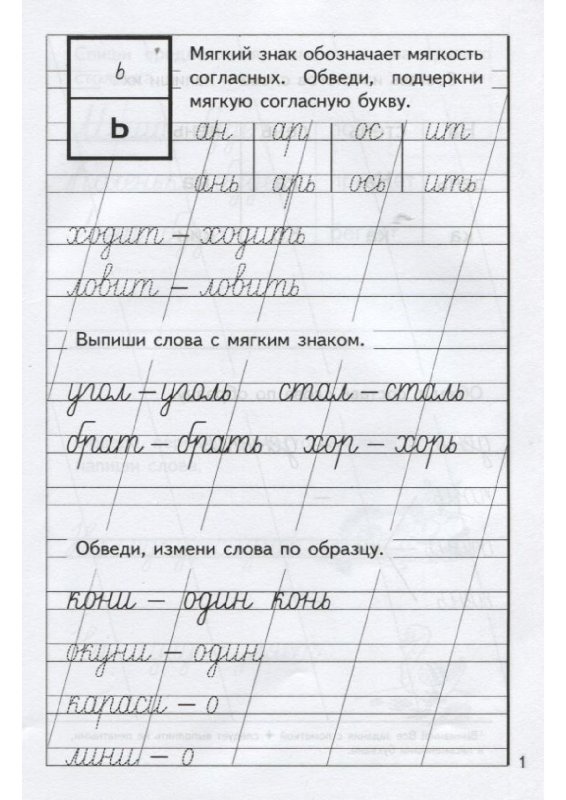 ь
Ь
Мягкий знак обозначает мягкость
согласных. Обведи, подчеркни
мягкую согласную букву.
ан ар ос ит
ань арь ось ить
ходит – ходить
ловит – ловить
Выпиши слова с мягким знаком.
угол – уголь стал – сталь
брат – брать хор – хорь
Обведи, измени слова по образцу.
кони – один конь
окуни – один
караси – о
лини – о
1